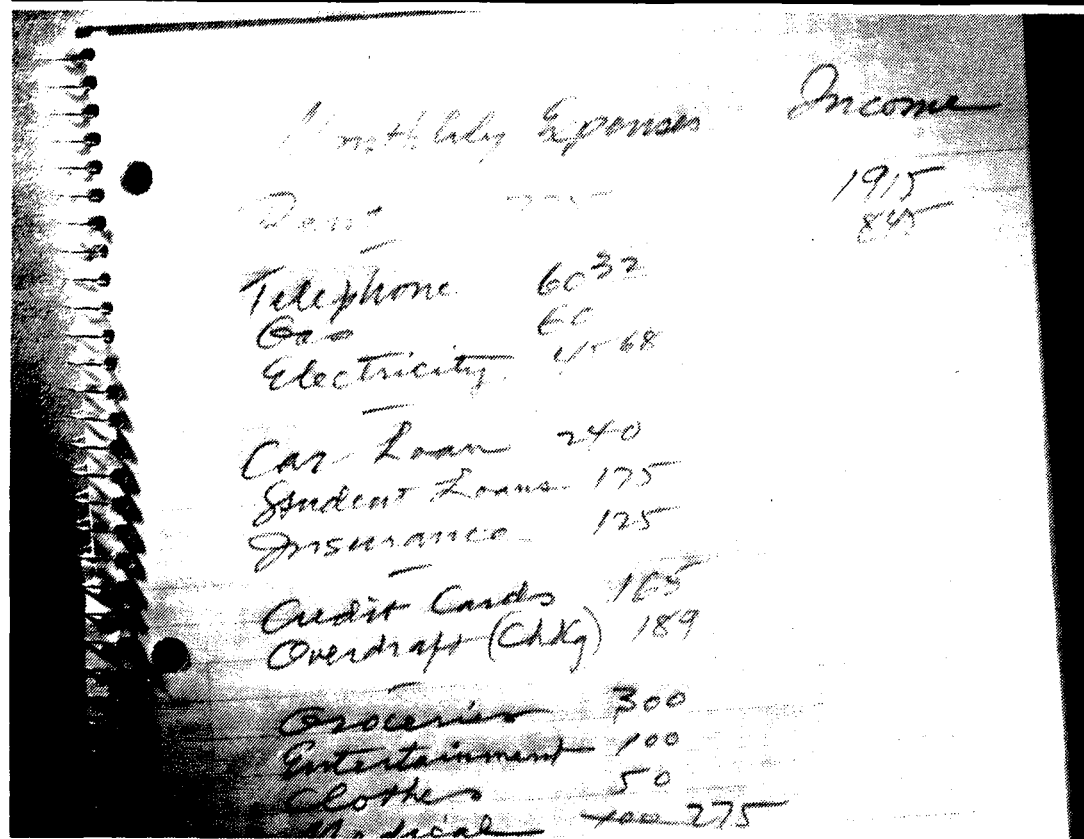 Monthly Expenses Income
Rent 775 1915
845
Telephone 60 32
Gas 60
Electricity 45 68
Car Loan 240
Student Loans 175
Insurance 125
Credit Cards 165
Overdraft (Chkg) 189
Groceries 300
Entertainment 100
Clothes 50
Medical 100 275